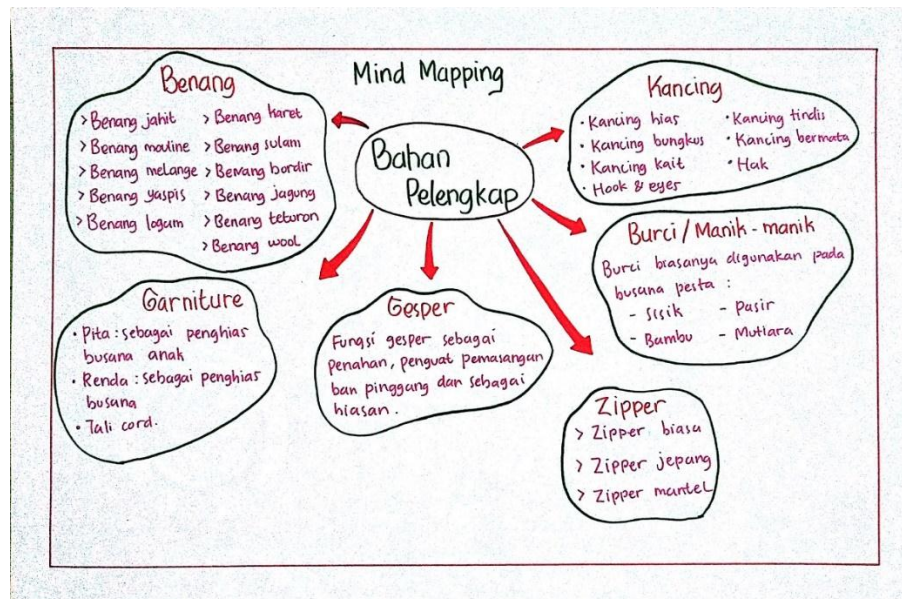 Mind Mapping
Bahan
Pelengkap
Benang
> Benang jahit
> Benang mouline
> Benang melange
> Benang yaspis
> Benang logam
> Benang karet
> Benang sulam
> Benang bordir
> Benang jagung
> Benang teturon
> Benang wool
Kancing
· Kancing hias
· Kancing bungkus
· Kancing kait
· Hook & eyes
· Kancing tindis
· Kancing bermata
· Hak
Burci / Manik - manik
Burci biasanya digunakan pada
busana pesta :
- Sisik - Pasir
- Bambu - Mutiara
Garniture
· Pita : sebagai penghias
busana anak
· Renda : sebagai penghias
busana
· Tali cord.
Gesper
Fungsi gesper sebagai
penahan, penguat pemasangan
ban pinggang dan sebagai
hiasan.
Zipper
> Zipper biasa
> Zipper jepang
> Zipper mantel